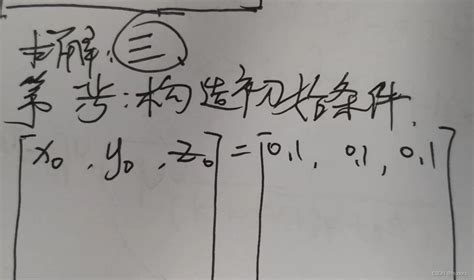 求解: 三
第一步: 构造初始条件.
[x₀, y₀, z₀] = [0.1, 0.1, 0.1